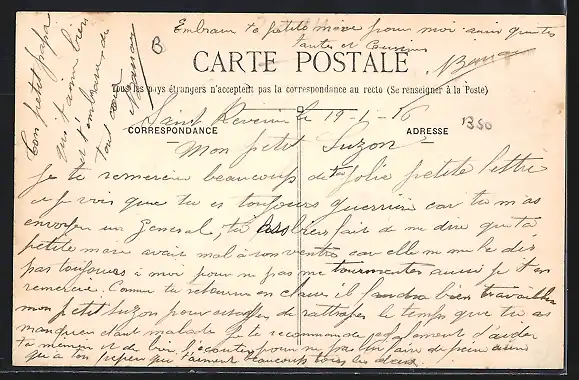 Embrasse ta petite mère pour moi ainsi que tes
tantes et Cousins
CARTE POSTALE
Tous les pays étrangers n'acceptent pas la correspondance au recto (Se renseigner à la Poste)
le 19-1-16
CORRESPONDANCE
ADRESSE
1350
Mon petit Suzon
Je te remercie beaucoup de ta jolie petite lettre
et je vois que tu es toujours guerrier car tu m'as
envoyer un General, tu as bien fait de me dire que ta
petite mère avait mal à son ventre car elle ne me le dis
pas toujours à moi pour ne pas me tourmenter aussi je t'en
remercie. Comme tu retourne en classe il faudra bien travailler
mon petit Suzon pour essayer de rattraper le temps que tu as
manquer étant malade je te recommande également d'aider
ta mémère et de bien l'écouter pour ne pas lui faire de peine ainsi
qu'à ton pépère qui t'aiment beaucoup tous les deux.
Ton petit papa
qui t'aime bien
et t'embrasse de
tout cœur